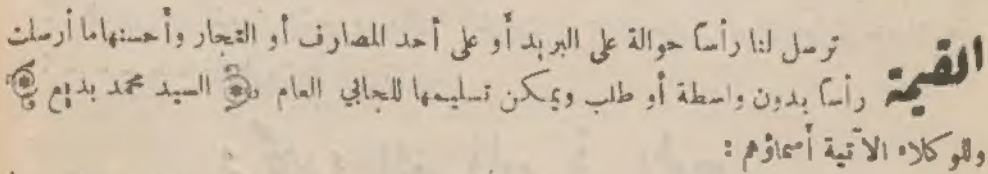 القيمة ترسل لنا رأساً حوالة على البريد أو على أحد المصارف أو التجار وأحسنها ما أرسلت
رأساً بدون واسطة أو طلب ويمكن تسليمها للجابي العام السيد محمد بديع
وللوكلاء الآتية أسماؤهم :